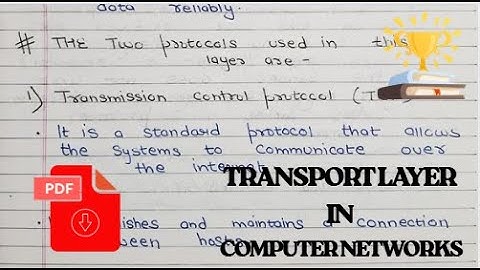 data reliably.
# THE Two protocols used in this
layer are -
1) Transmission control protocol (T
• It is a standard protocol that allows
the systems to communicate over
the internet
PDF
TRANSPORT LAYER
IN
COMPUTER NETWORKS
ishes and maintains a connection
een hosts